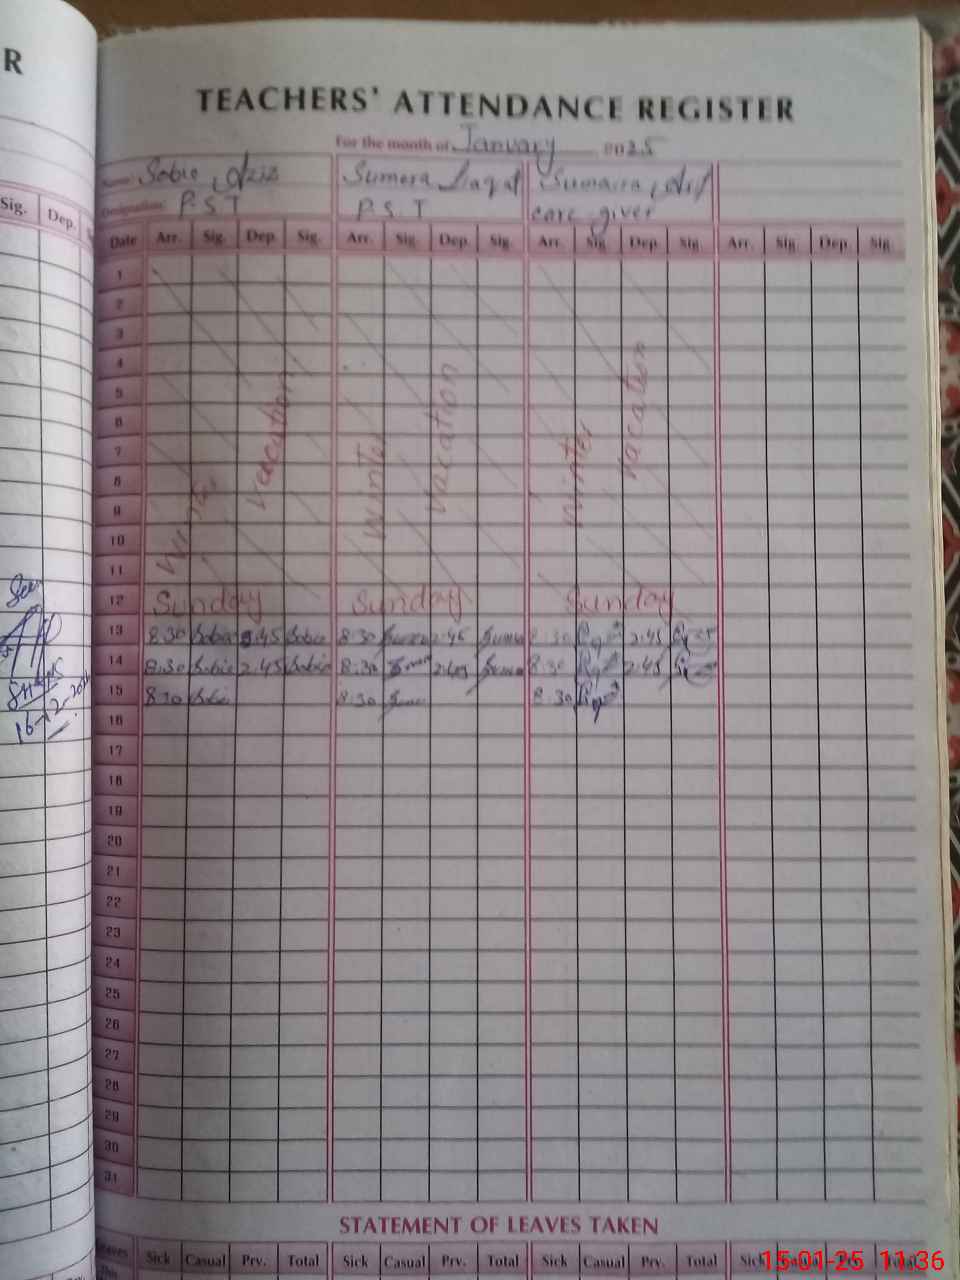 R
TEACHERS' ATTENDANCE REGISTER
For the month of January 2025
Name Sobia Aziz Sumera Liaqat Sumaira Arif
Designation P.S.T P.S.T care giver
Sig. Dep.
Date Arr. Sig. Dep. Sig. Arr. Sig. Dep. Sig. Arr. Sig. Dep. Sig. Arr. Sig. Dep. Sig.
1
2
3
4
5
6
7
8
9
10
11
Winter vacation Winter vacation Winter vacation
12 Sunday Sunday Sunday
13 8:30 Sobia 2:45 Sobia 8:30 2:45 8:30 2:45
14 8:30 Sobia 2:45 Sobia 8:30 2:45 8:30 2:45
15 8:30 Sobia 8:30 8:30
16
17
18
19
20
21
22
23
24
25
26
27
28
29
30
31
Seen
16-12-2024
STATEMENT OF LEAVES TAKEN
Leaves Sick Casual Prv. Total Sick Casual Prv. Total Sick Casual Prv. Total Sick Casual Prv. Total
15-01-25 11:36